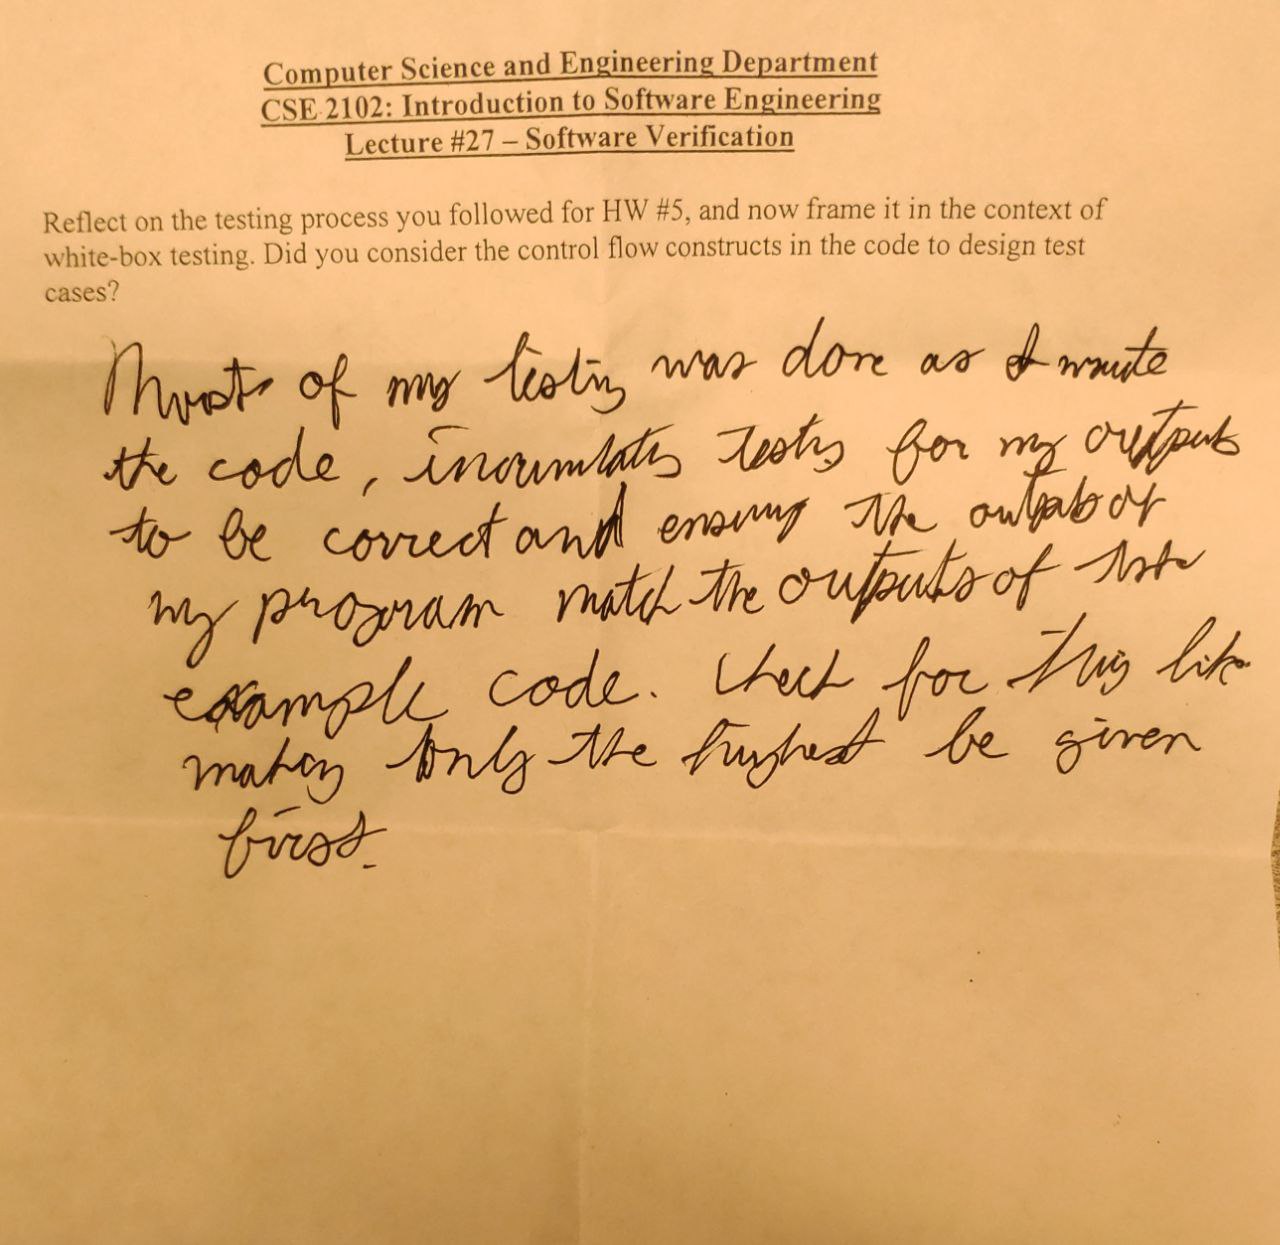 Computer Science and Engineering Department
CSE 2102: Introduction to Software Engineering
Lecture #27 – Software Verification
Reflect on the testing process you followed for HW #5, and now frame it in the context of
white-box testing. Did you consider the control flow constructs in the code to design test
cases?
Most of my testing was done as I wrote
the code, testing for my outputs
to be correct and ensuring the outputs of
my program match the outputs of the
example code. Check for things like
making only the highest be given
first.